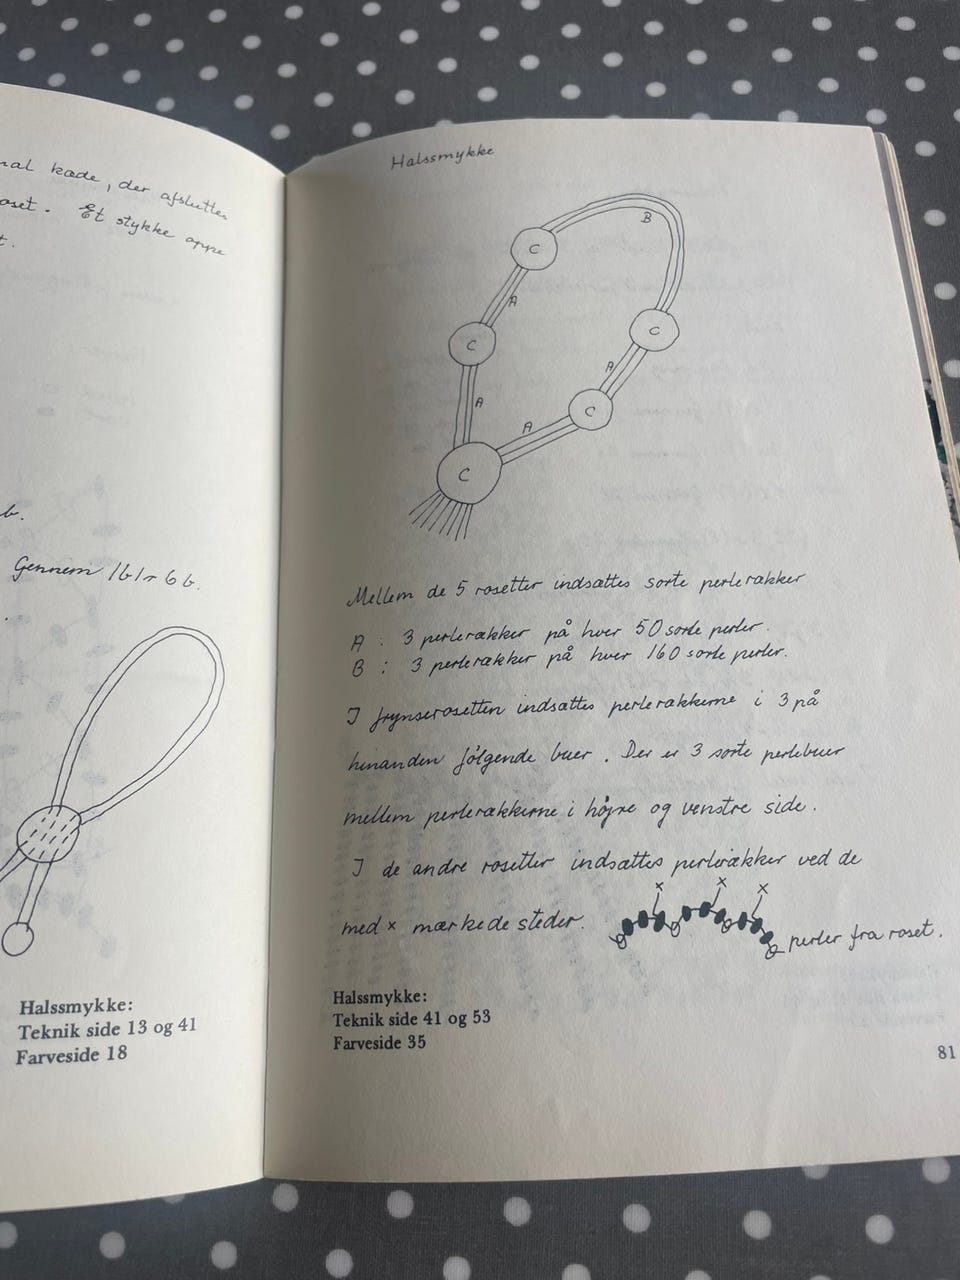 kæde, der afsluttes
Et stykke oppe
b.
Gennem 1b1 r 6b.
Halssmykke:
Teknik side 13 og 41
Farveside 18
Halssmykke
B
C
A
C
C
A
A
C
A
C
Mellem de 5 rosetter indsættes sorte perlerækker
A : 3 perlerækker på hver 50 sorte perler.
B : 3 perlerækker på hver 160 sorte perler.
I frynserosetten indsættes perlerækkerne i 3 på
hinanden følgende buer. Der er 3 sorte perlebuer
mellem perlerækkerne i højre og venstre side.
I de andre rosetter indsættes perlerækker ved de
x x x
med x mærkede steder. perler fra roset.
Halssmykke:
Teknik side 41 og 53
Farveside 35
81